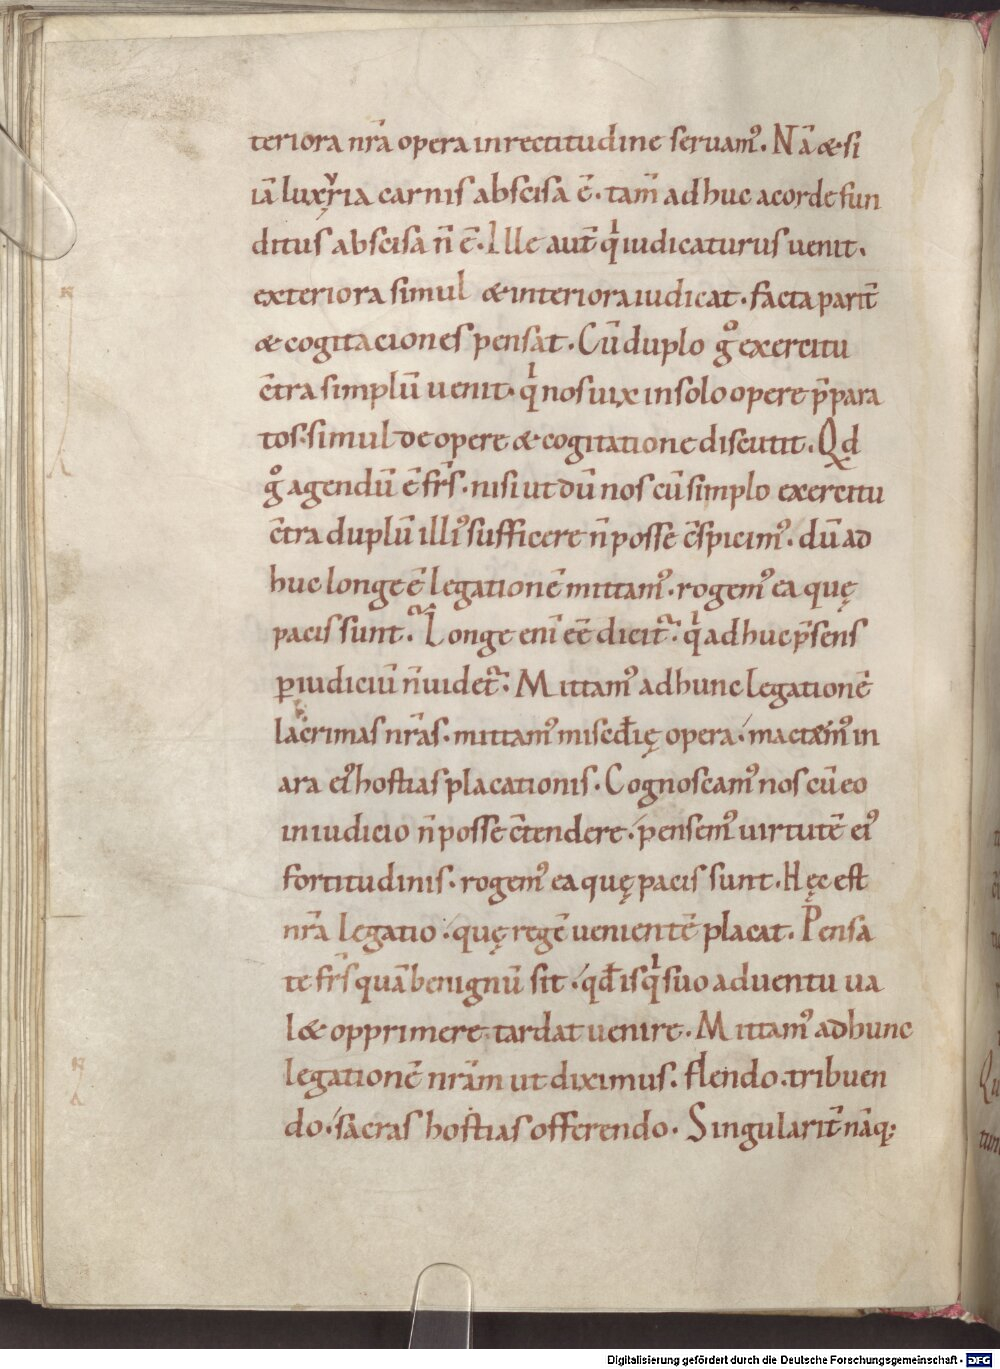 teriora nr̄a opera inrectitudine seruam᷒. Nā & si
iā luxͮria carnis abscisa ē. tam̄ adhuc acorde fun
ditus abscisa n̄ ē. Ille aut̄ qͥ iudicaturus uenit.
exteriora simul & interiora iudicat. facta parit̄
& cogitaciones pensat. Cū duplo gͦ exercitu
c̄tra simplū uenit. qͥ nos uix insolo opere p̄para
tos. simul de opere & cogitatione discutit. Qd
gͦ agendū ē fr̄s. nisi ut dū nos cū simplo exercitu
c̄tra duplū illi᷒ sufficere n̄ posse c̄spicim᷒. dū ad
huc longe ē legationē mittam᷒. rogem᷒ ea quę
pacis sunt. Longe eni̅ eē dicit᷑. qͥ adhuc p̄sens
ꝑiudiciū n̄ uidet᷑. Mittam᷒ adhunc legationē
lacrimas nr̄as. mittam᷒ misc̄dię opera. mactem᷒ in
ara ei᷒ hostias placationis. Cognoscam᷒ nos cū eo
in iudicio n̄ posse c̄tendere. pensem᷒ uirtutē ei᷒
fortitudinis. rogem᷒ ea quę pacis sunt. Hęc est
nr̄a legatio. quę regē uenientē placat. Pensa
te fr̄s quā benignū sit. qđ is qͥ suo aduentu ua
l& opprimere. tardat uenire. Mittam᷒ adhunc
legationē nr̄am ut diximus. flendo. tribuen
do. sacras hostias offerendo. Singularit̄ nāq;
Digitalisierung gefördert durch die Deutsche Forschungsgemeinschaft - DFG